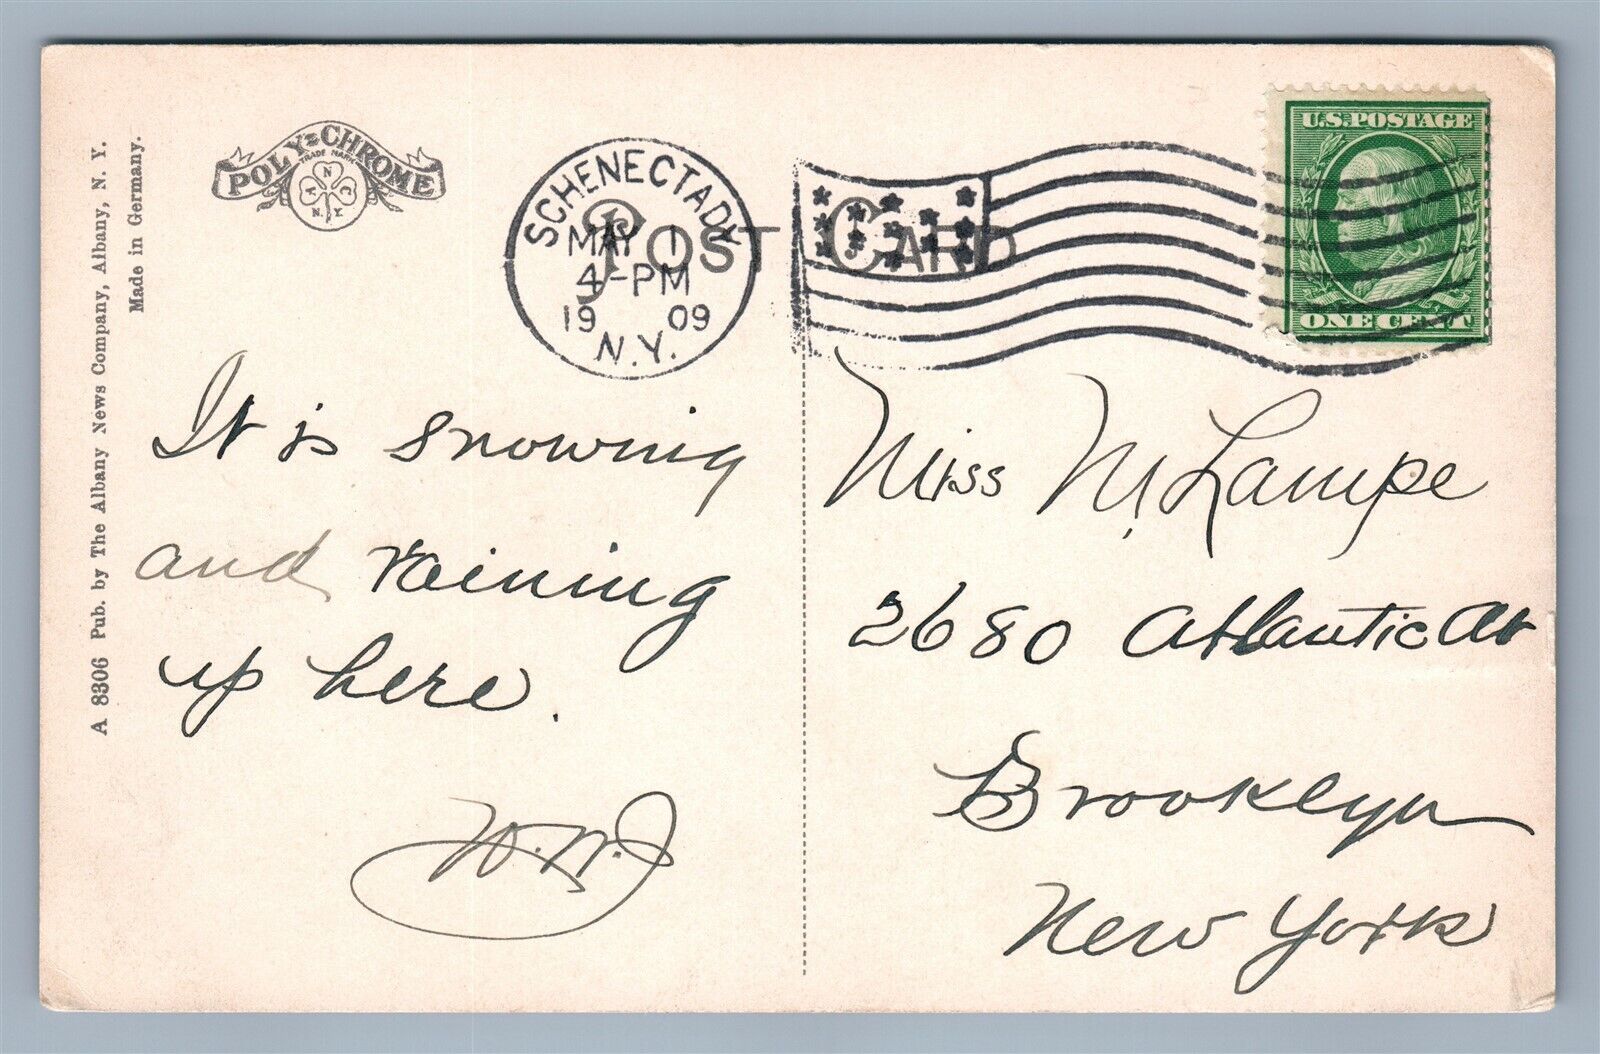 A 8306 Pub. by The Albany News Company, Albany, N. Y.
Made in Germany.
POLY-CHROME
TRADE MARK
A N C
N.Y.
POST CARD
SCHENECTADY
MAY 1
4-PM
1909
N.Y.
U.S. POSTAGE
ONE CENT
It is snowing
and raining
up here.
Miss M. Lampe
2680 Atlantic Av
Brooklyn
New York